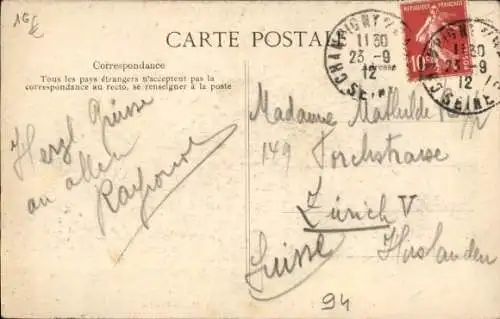 16
CARTE POSTALE
Correspondance
Tous les pays étrangers n'acceptent pas la
correspondance au recto, se renseigner à la poste
Herzl Grüsse
an allen
Raymond
REPUBLIQUE FRANÇAISE
10
POSTES
CHAMPIGNY
11 30
23 - 9
12
SEINE
11 30
23 - 9
12
SEINE
Adresse
Madame Mathilde
149 Forchstrasse
Zürich V
Suisse Hirslanden
94